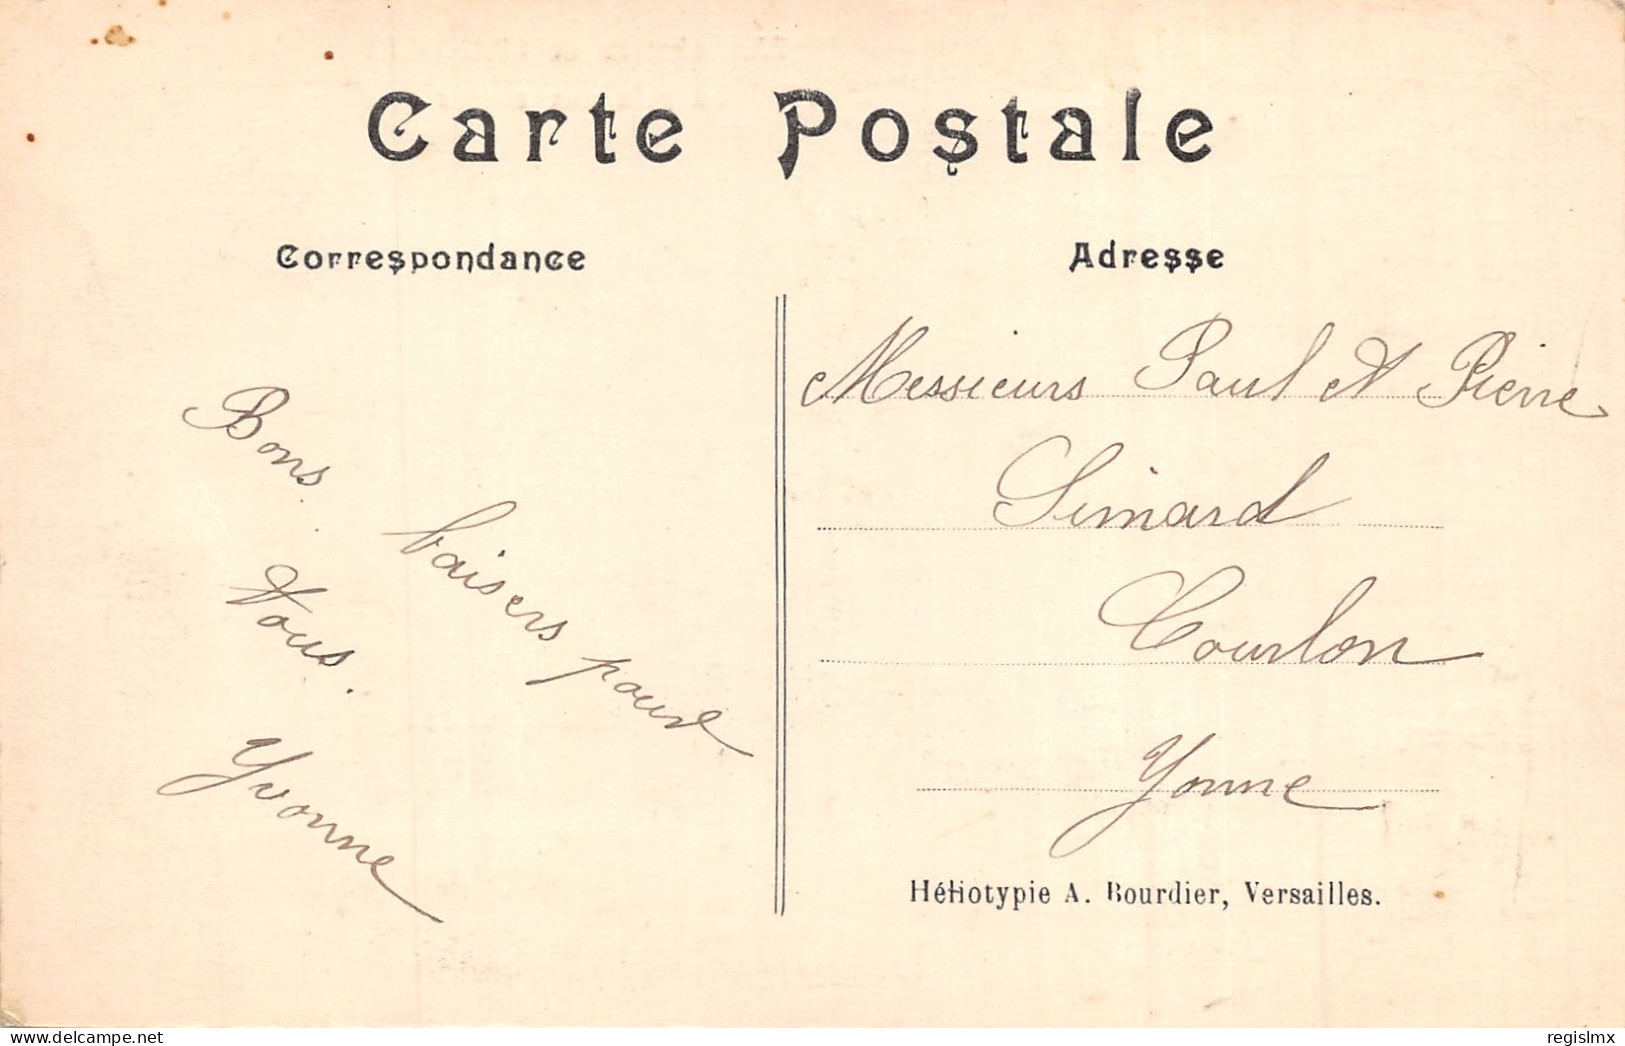 Carte Postale
Correspondance
Bons baisers pour
vous.
Yvonne
Adresse
Messieurs Paul et Pierre
Simard
Courlon
Yonne
Héliotypie A. Bourdier, Versailles.
delcampe.net
regislmx